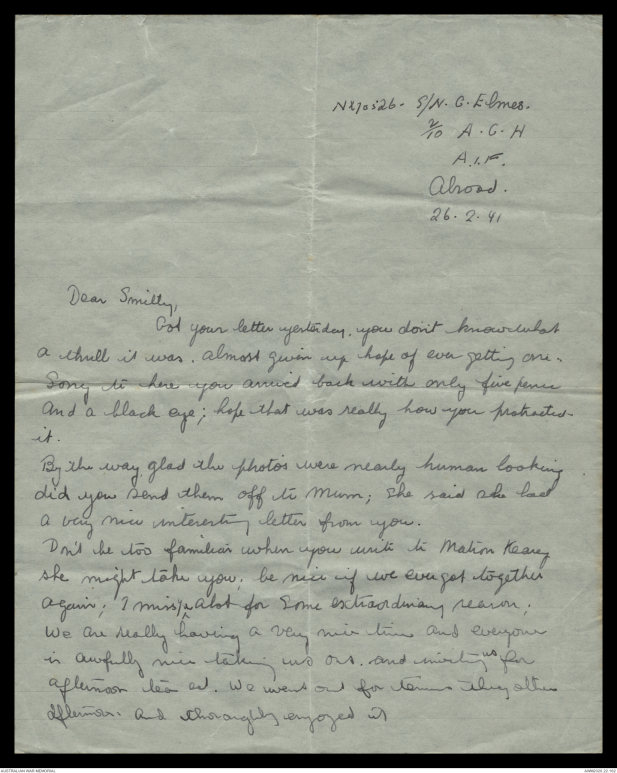 NX70526. S/N. G. Elmes.
2/10 A.G.H
A.I.F.
Abroad.
26.2.41
Dear Smithy,
Got your letter yesterday, you don't know what
a thrill it was. almost given up hope of ever getting one.
Sorry to here you arrived back with only five pence
And a black eye; hope that was really how you protracted
it.
By the way, glad the photos were nearly human looking
did you send them off to Mum; she said she had
a very nice interesting letter from you.
Don't be too familiar when you write to Matron Keary
she might take you, be nice if we ever got together
again; I miss ya alot for some extraordinary reason;
We are really having a very nice time and everyone
is awfully nice taking us out. and inviting us for
afternoon tea ect. We went out for tennis they other
afternoon. and thoroughly enjoyed it
AUSTRALIAN WAR MEMORIAL